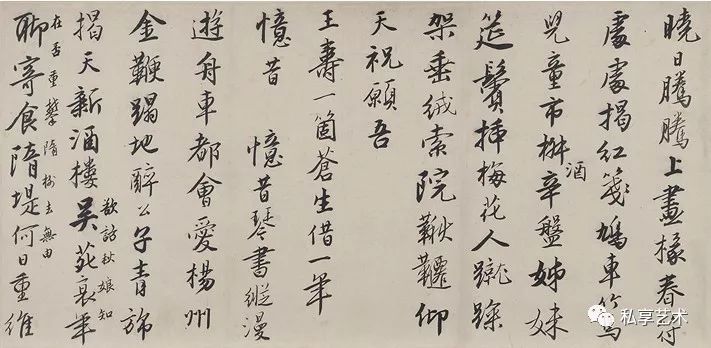 曉日騰騰上畫椽春符
處處揭紅箋鳩車竹馬
兒童市椒酒辛盤姊妹
筵鬢挿梅花人蹴踘
架垂絨索院鞦韆仰
天祝願吾
王壽一箇蒼生借一年
憶昔 憶昔琴書縱漫
遊舟車都會愛楊州
金鞭蹋地醉公子青旆
揭天新酒樓吳苑
欲詰秋娘知
在否重攀隋樹去無由
聊寄食隋堤何日重維
私享艺术